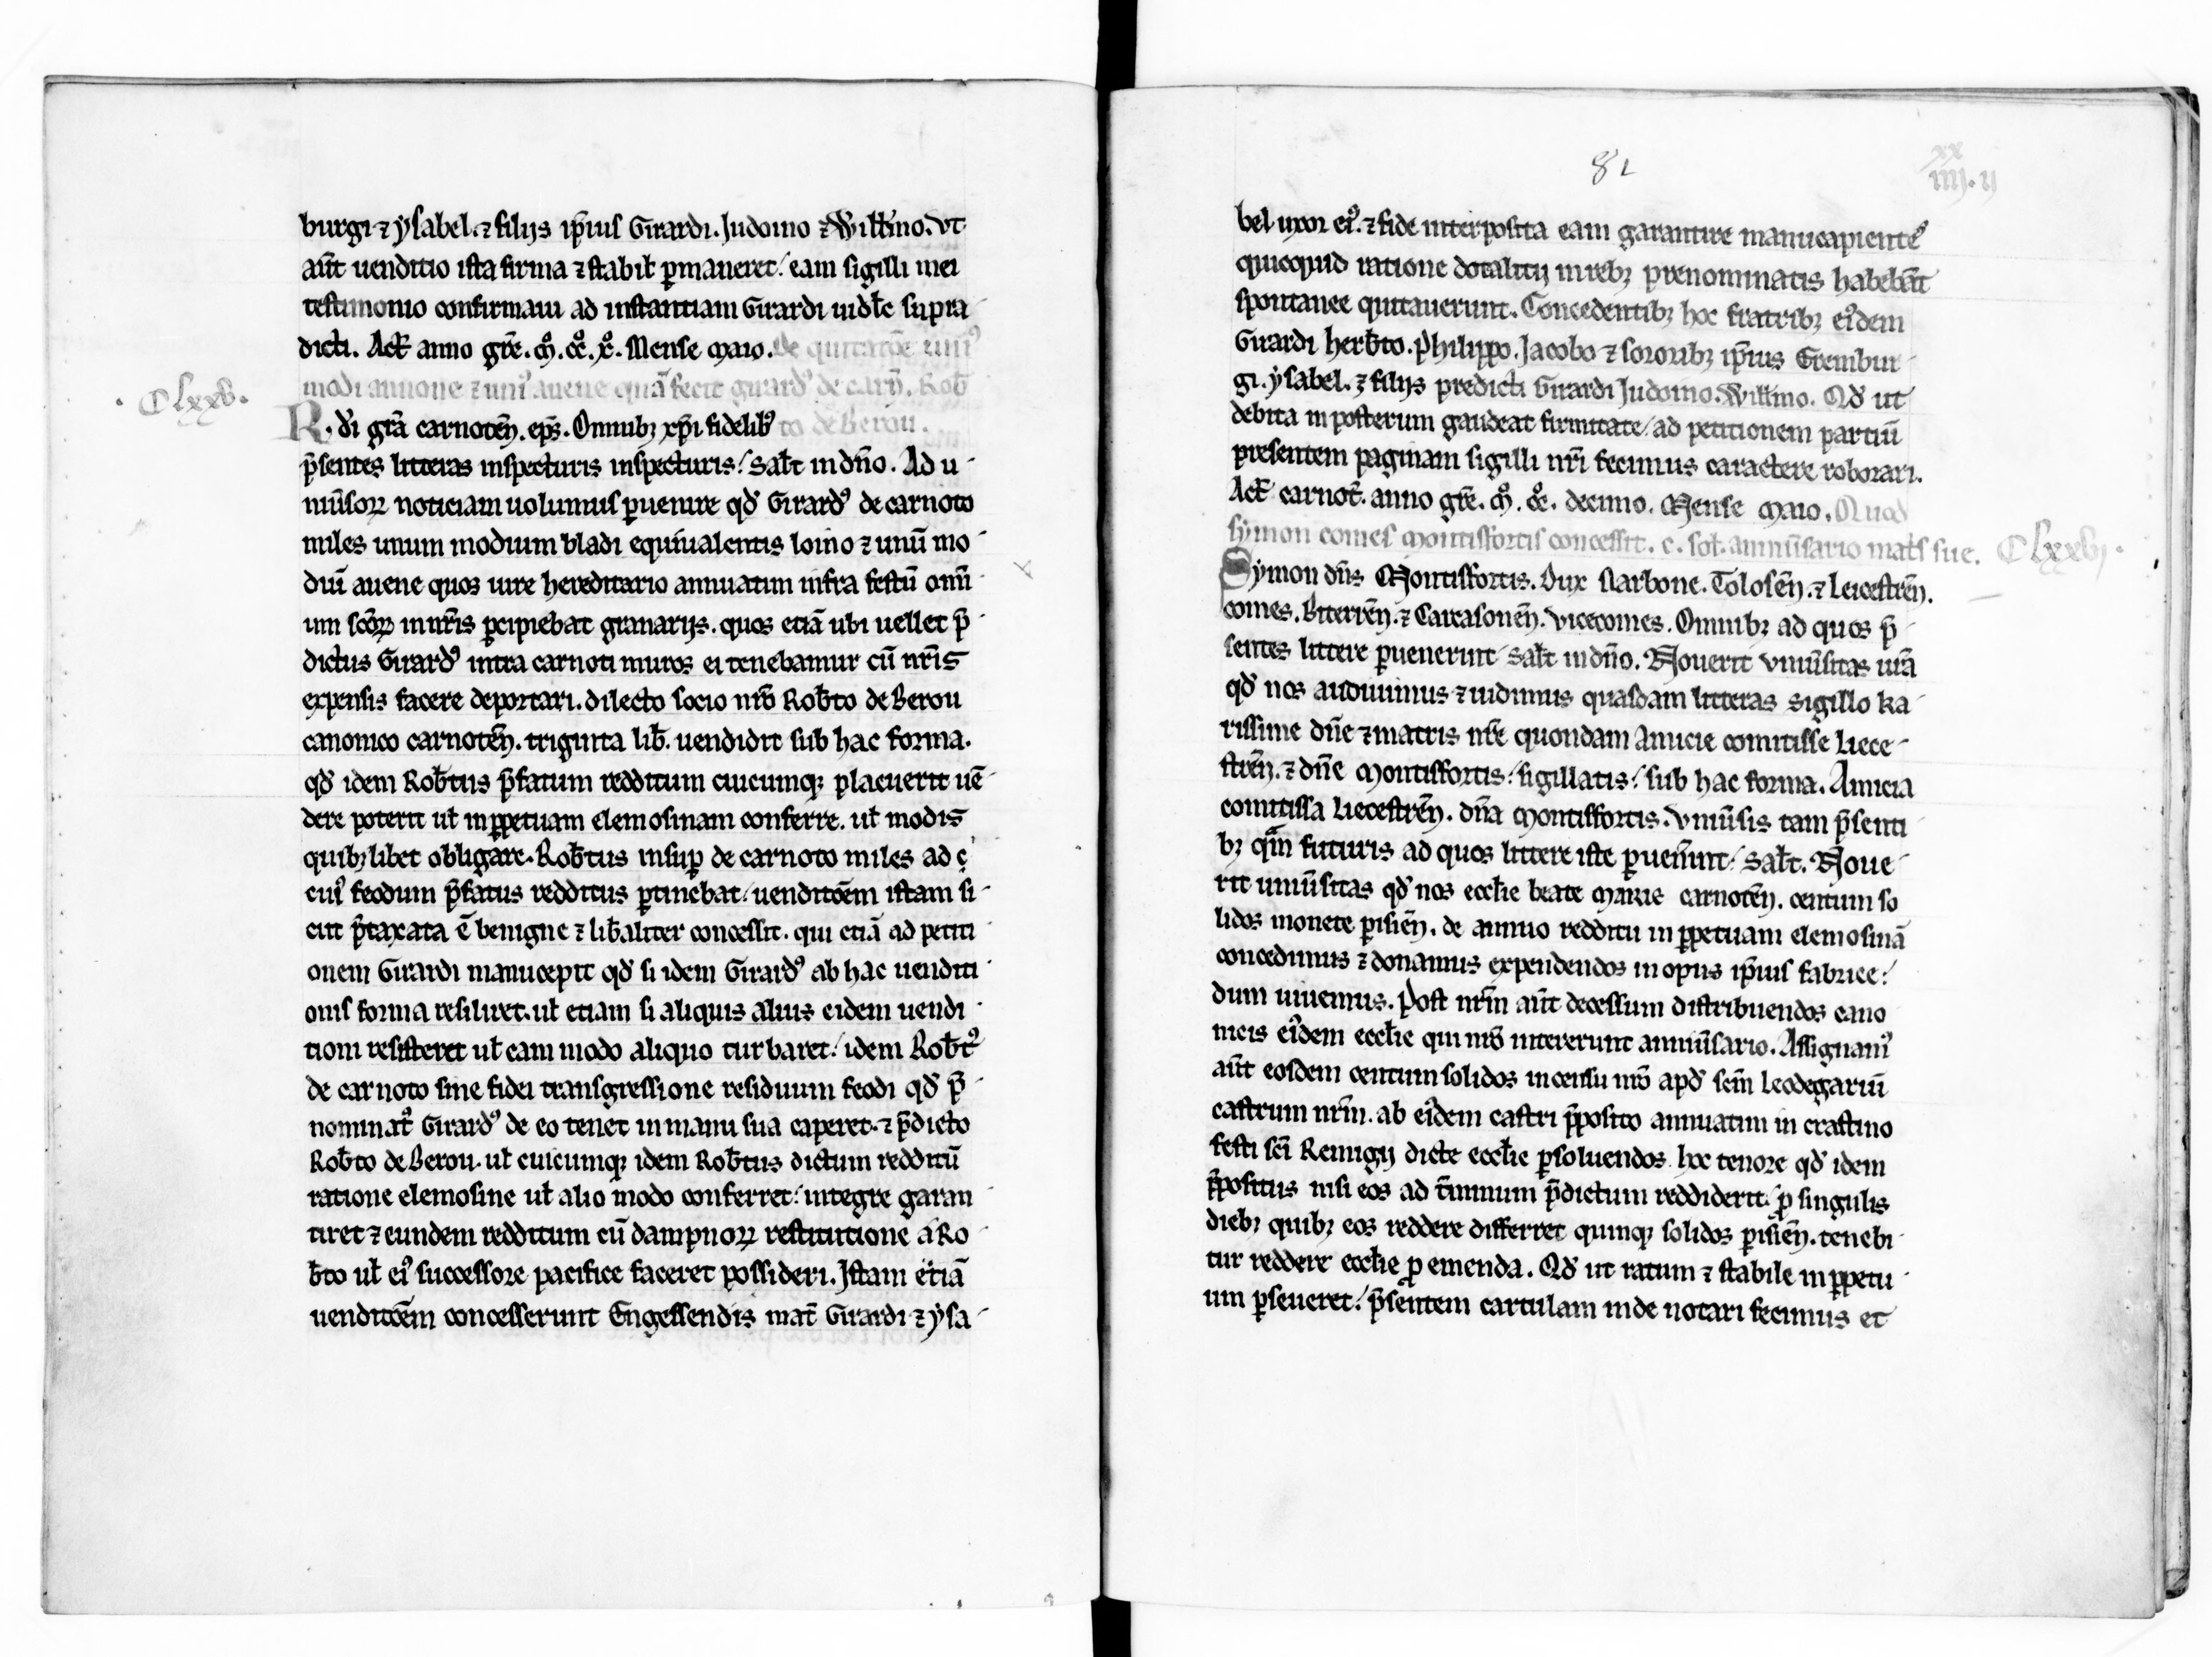 burgi ⁊ ysabel. ⁊ filijs ip̄ius Girardi. Judoino ⁊ Willmo. Vt
aūt uenditio ista firma ⁊ stabil̄ ꝑmaneret / eam sigilli mei
testimonio confirmaui ad instantiam Girardi uidl̄c supra
dicti. Act̄ anno gr̄e. mͦ. ccͦ. xͦ. Mense maio. De quitat̄oe uniꝰ
modi annone ⁊ uniꝰ auene quā fecit girardꝰ de carn̄. Rob̄
. Clxxv.
to de Berou.
R. d̄i gr̄a carnoten̄. ep̄s. Omnibꝫ xp̄i fidelibꝰ
p̄sentes litteras inspecturis inspecturis / Sal̄t in dn̄o. Ad u
niūsoꝝ noticiam uolumus ꝑuenire qd̄ Girardꝰ de carnoto
miles unum modium bladi equiualentis loino ⁊ unū mo
diū auene quos iure hereditario annuatim infra festū omī
um sc̄oꝝ in nr̄is ꝑcipiebat granarijs. quos etiā ubi uellet p̄
dictus Girardꝰ intra carnoti muros ei tenebamur cū nr̄is
expensis facere deportari. dilecto socio nr̄o Rob̄to de Berou
canonico carnoten̄. triginta lib̄. uendidit sub hac forma.
qd̄ idem Rob̄tus p̄fatum redditum cuicumqꝫ placuerit uē
dere poterit ul̄ in ꝑpetuam elemosinam conferre. ul̄ modis
quibꝫlibet obligare. Rob̄tus insuꝑ de carnoto miles ad
cuiꝰ feodum p̄fatus redditus ꝑtinebat / uendit̄oem istam si
cut p̄taxata ē benigne ⁊ lib̄aliter concessit. qui etiā ad petiti
onem Girardi manucepit qd̄ si idem Girardꝰ ab hac uenditi
onis forma resiliret. ul̄ etiam si aliquis alius eidem uendi
tioni resisteret ul̄ eam modo aliquo turbaret / idem Rob̄tꝰ
de carnoto sine fidei transgressione residuum feodi qd̄ p̄
nominatꝰ Girardꝰ de eo tenet in manu sua caperet. ⁊ p̄dicto
Rob̄to de Berou. ul̄ cuicumqꝫ idem Rob̄tus dictum redditū
ratione elemosine ul̄ alio modo conferret / integre garan
tiret ⁊ eundem redditum cū dampnoꝝ restitutione a Ro
b̄to ul̄ eiꝰ successore pacifice faceret possideri. Istam etiā
uendit̄oem concesserunt Engessendis mat̄ Girardi ⁊ ysa
82
xx
iiij. ij
bel uxor eiꝰ. ⁊ fide interposita eam garantire manucapientes
quicquid ratione dotalitij in rebꝫ prenominatis habebāt
spontanee quitauerunt. Concedentibꝫ hoc fratribꝫ eiꝰdem
Girardi herb̄to. Philippo. Jacobo ⁊ sororibꝫ ip̄ius Erembur
gi. ysabel. ⁊ filijs predicti Girardi Judoino. Willmo. Qd̄ ut
debita in posterum gaudeat firmitate / ad petitionem partiū
presentem paginam sigilli nr̄i fecimus caractere roborari.
Act̄ carnot̄. anno gr̄e. mͦ. ccͦ. decimo. Mense maio. Quod
symon comes montisfortis concessit. c. sol̄. anniūsario mat̄s sue.
Clxxvj.
Symon dn̄s Montisfortis. Dux Narbone. Tolosen̄. ⁊ Leicestren̄.
comes. Biterren̄. ⁊ Carcasonen̄. vicecomes. Omnibꝫ ad quos p̄
sentes littere ꝑuenerint / sal̄t in dn̄o. Nouerit vniūsitas ur̄a
qd̄ nos audiuimus ⁊ uidimus quasdam litteras sigillo ka
rissime dn̄e ⁊ matris nr̄e quondam Amicie comitisse Liece
stren̄. ⁊ dn̄e montisfortis / sigillatis / sub hac forma. Amicia
comitissa Liecestren̄. dn̄a montisfortis. vniūsis tam p̄senti
bꝫ qm̄ futuris ad quos littere iste ꝑuen̄int / sal̄t. Noue
rit uniūsitas qd̄ nos eccl̄ie beate marie carnoten̄. centum so
lidos monete ꝑisien̄. de annuo redditu in ꝑpetuam elemosinā
concedimus ⁊ donamus expendendos in opus ip̄ius fabrice /
dum uiuemus. Post nr̄m aūt decessum distribuendos cano
nicis eiꝰdem eccl̄ie qui nr̄o intererunt anniūsario. Assignamꝰ
aūt eosdem centum solidos in censu nr̄o apd̄ scm̄ Leodegariū
castrum nr̄m. ab eiꝰdem castri p̄posito annuatim in crastino
festi sc̄i Remigij dicte eccl̄ie ꝑsoluendos hoc tenore qd̄ idem
p̄positus nisi eos ad t̄minum p̄dictum reddiderit / ꝓ singulis
diebꝫ quibꝫ eos reddere differret quinqꝫ solidos ꝑisien̄. tenebi
tur reddere eccl̄ie ꝓ emenda. Qd̄ ut ratum ⁊ stabile in ꝑpetu
um ꝑseueret / p̄sentem cartulam inde notari fecimus et